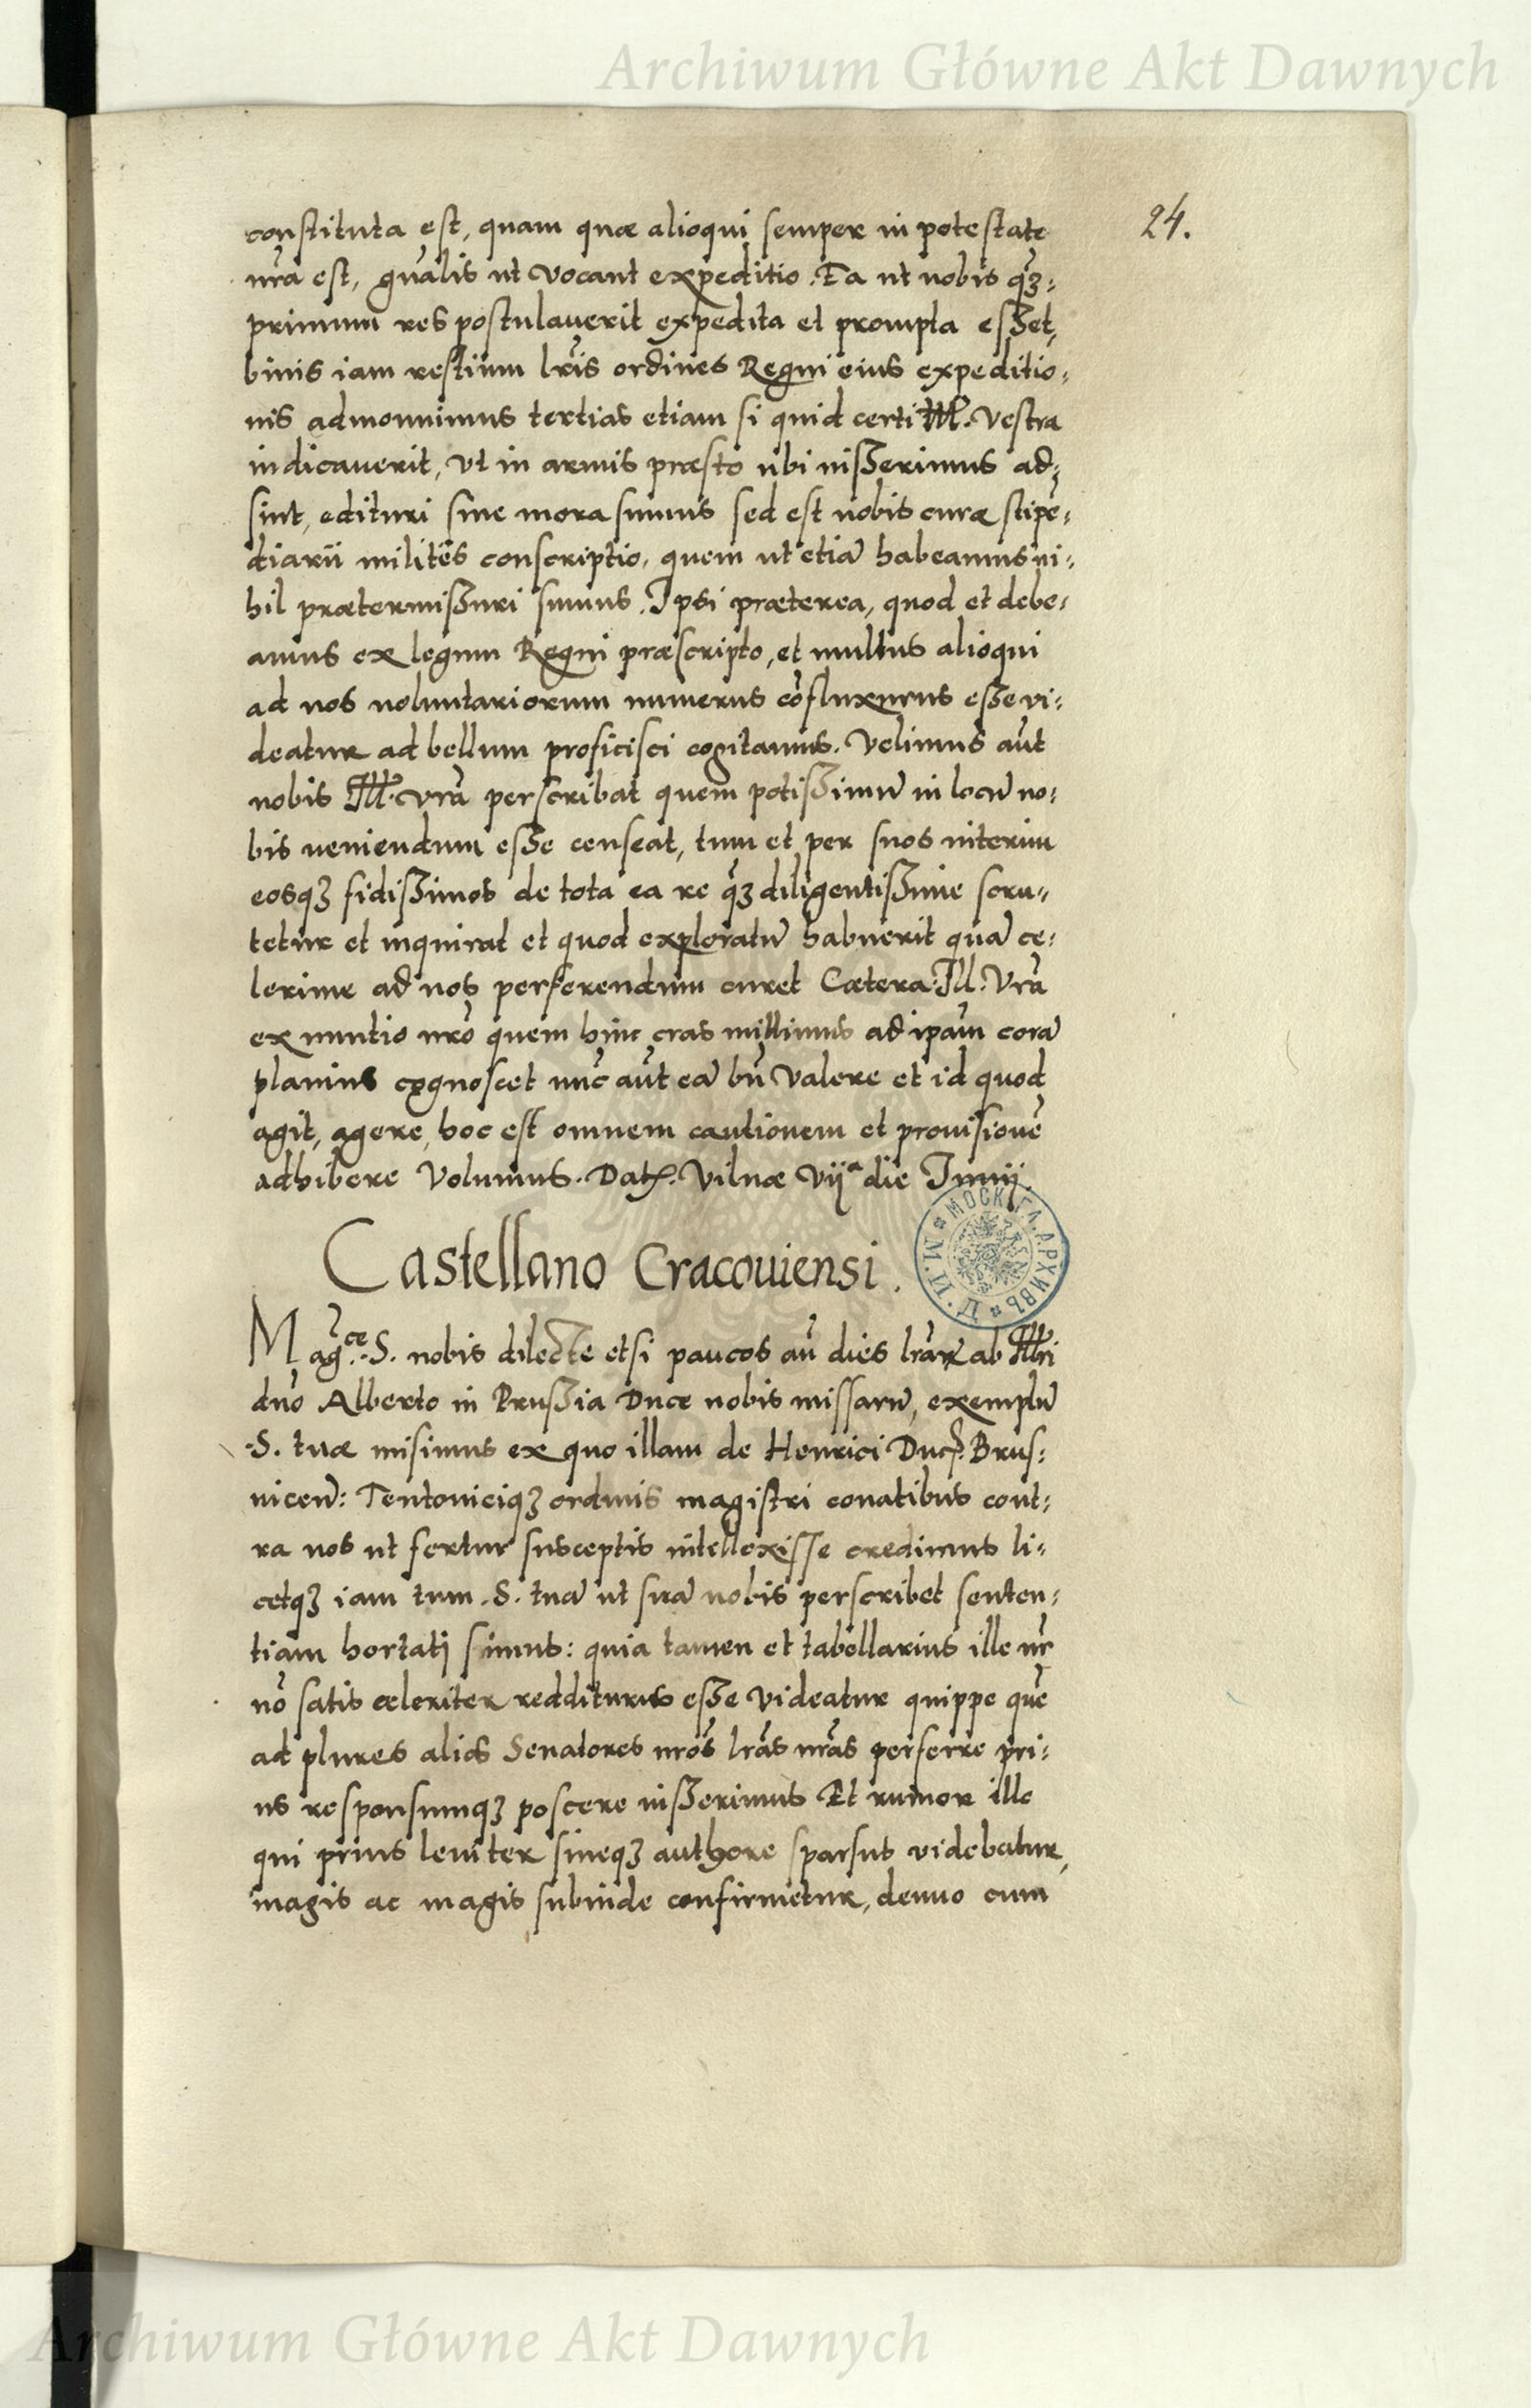 Archiwum Główne Akt Dawnych
24.
constituta est, quam quæ alioqui semper in potestate
nrã est, gñalis ut vocant expeditio. Ea ut nobis q̃ꝫ:
primum res postulauerit expedita et prompta esset,
binis iam restium lrĩs ordines Regni eius expeditio:
nis admonuimus tertias etiam si quid certi Ill. Vestra
indicauerit, Vt in armis præsto ubi iusserimus ad:
sint, edituri sine mora sumus sed est nobis curæ stipẽ:
diarii militis conscriptio, quem ut etiã habeamus ni:
hil prætermissuri sumus. Ipsi præterea, quod et debe:
amus ex legum Regni præscripto, et multus alioqui
ad nos uoluntariorum numerus cõfluxurus esse vi:
deatur ad bellum proficisci cogitamus. Velimus aũt
nobis Ill. vrã perscribat quem potissimũ in locũ no:
bis ueniendum esse censeat, tum et per suos interim
eosqꝫ fidissimos de tota ea re q̃ꝫ diligentissime scru:
tetur et inquirat et quod exploratũ habuerit quã ce:
lerime ad nos perferendum curet Cætera Ill. Vrã
ex nuntio nrõ quem hinc cras mittimus ad ipãm corã
planius cognoscet nũc aũt eã bñ valere et id quod
agit, agere, hoc est omnem cautionem et prouisionẽ
adhibere Volumus. Datꝭ. Vilnæ Vijª die Junij.
Castellano Cracouiensi.
Mag.ce S. nobis dilecte etsi paucos añ dies lrãꝝ ab Illri
dño Alberto in Prussia Duce nobis missarũ, exemplũ
S. tuæ misimus ex quo illam de Henrici Ducꝭ. Brus:
uiceñ: Teutoniciqꝫ ordinis magistri conatibus cont:
ra nos ut fertur susceptis intellexisse credimus li:
cetqꝫ iam tum S. tuã ut suã nobis perscribet senten:
tiam hortati simus: quia tamen et tabellarius ille nr̃
nõ satis celeriter redditurus esse videatur quippe quẽ
ad plures alios Senatores nrõs lrãs nrãs perferre pri:
us responsumqꝫ poscere iusserimus Et rumor ille
qui prius leuiter sineqꝫ authore sparsus videbatur,
magis ac magis subinde confirmetur, denuo cum
МОСК. ГЛ. АРХИВЪ
Archiwum Główne Akt Dawnych